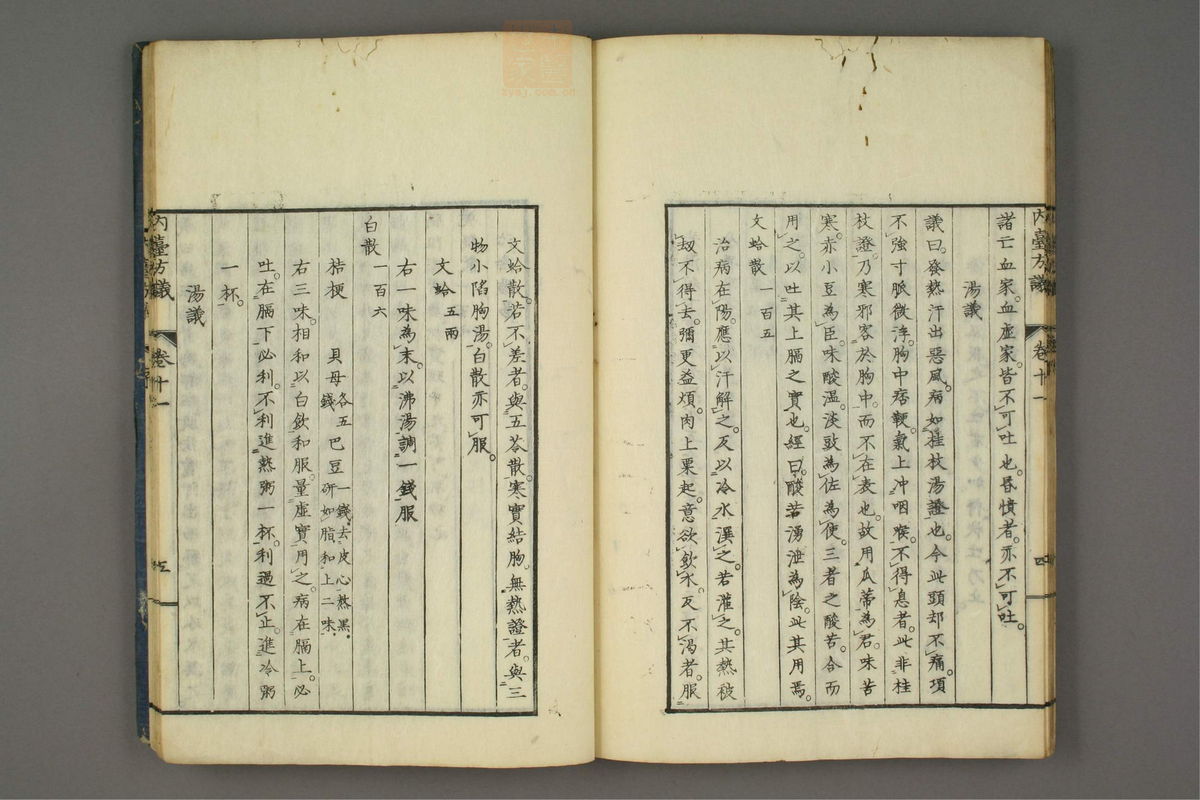 諸亡血家。血虛家。皆不可吐也。昏憒者。亦不可吐。
湯議
議曰。發熱汗出惡風。病如桂枝湯證也。今此頭却不痛。項
不強。寸脈微浮。胸中痞鞕。氣上冲咽喉。不得息者。此非桂
枝證。乃寒邪客於胸中。而不在表也。故用瓜蒂為君。味苦
寒。赤小豆為臣。味酸溫。淡豉為佐為使。三者之酸苦。合而
用之。以吐其上膈之實也。經曰。酸苦湧泄為陰。此其用焉。
文蛤散 一百五
治病在陽。應以汗解之。反以冷水潠之。若灌之。其熱被
刼不得去。彌更益煩。肉上粟起。意欲飲水。反不渴者。服
內臺方議 卷十一 四
文蛤散。若不差者。與五苓散。寒實結胸。無熱證者。與三
物小陷胸湯。白散亦可服。
文蛤 五兩
右一味為末。以沸湯調一錢服
白散 一百六
桔梗 貝母各五錢 巴豆一錢去皮心熬黑研如脂和上二味
右三味。相和以白飲和服。量虛實用之。病在膈上。必
吐。在膈下必利。不利進熱粥一杯。利過不止。進冷粥
一杯。
湯議
內臺方議 卷十一